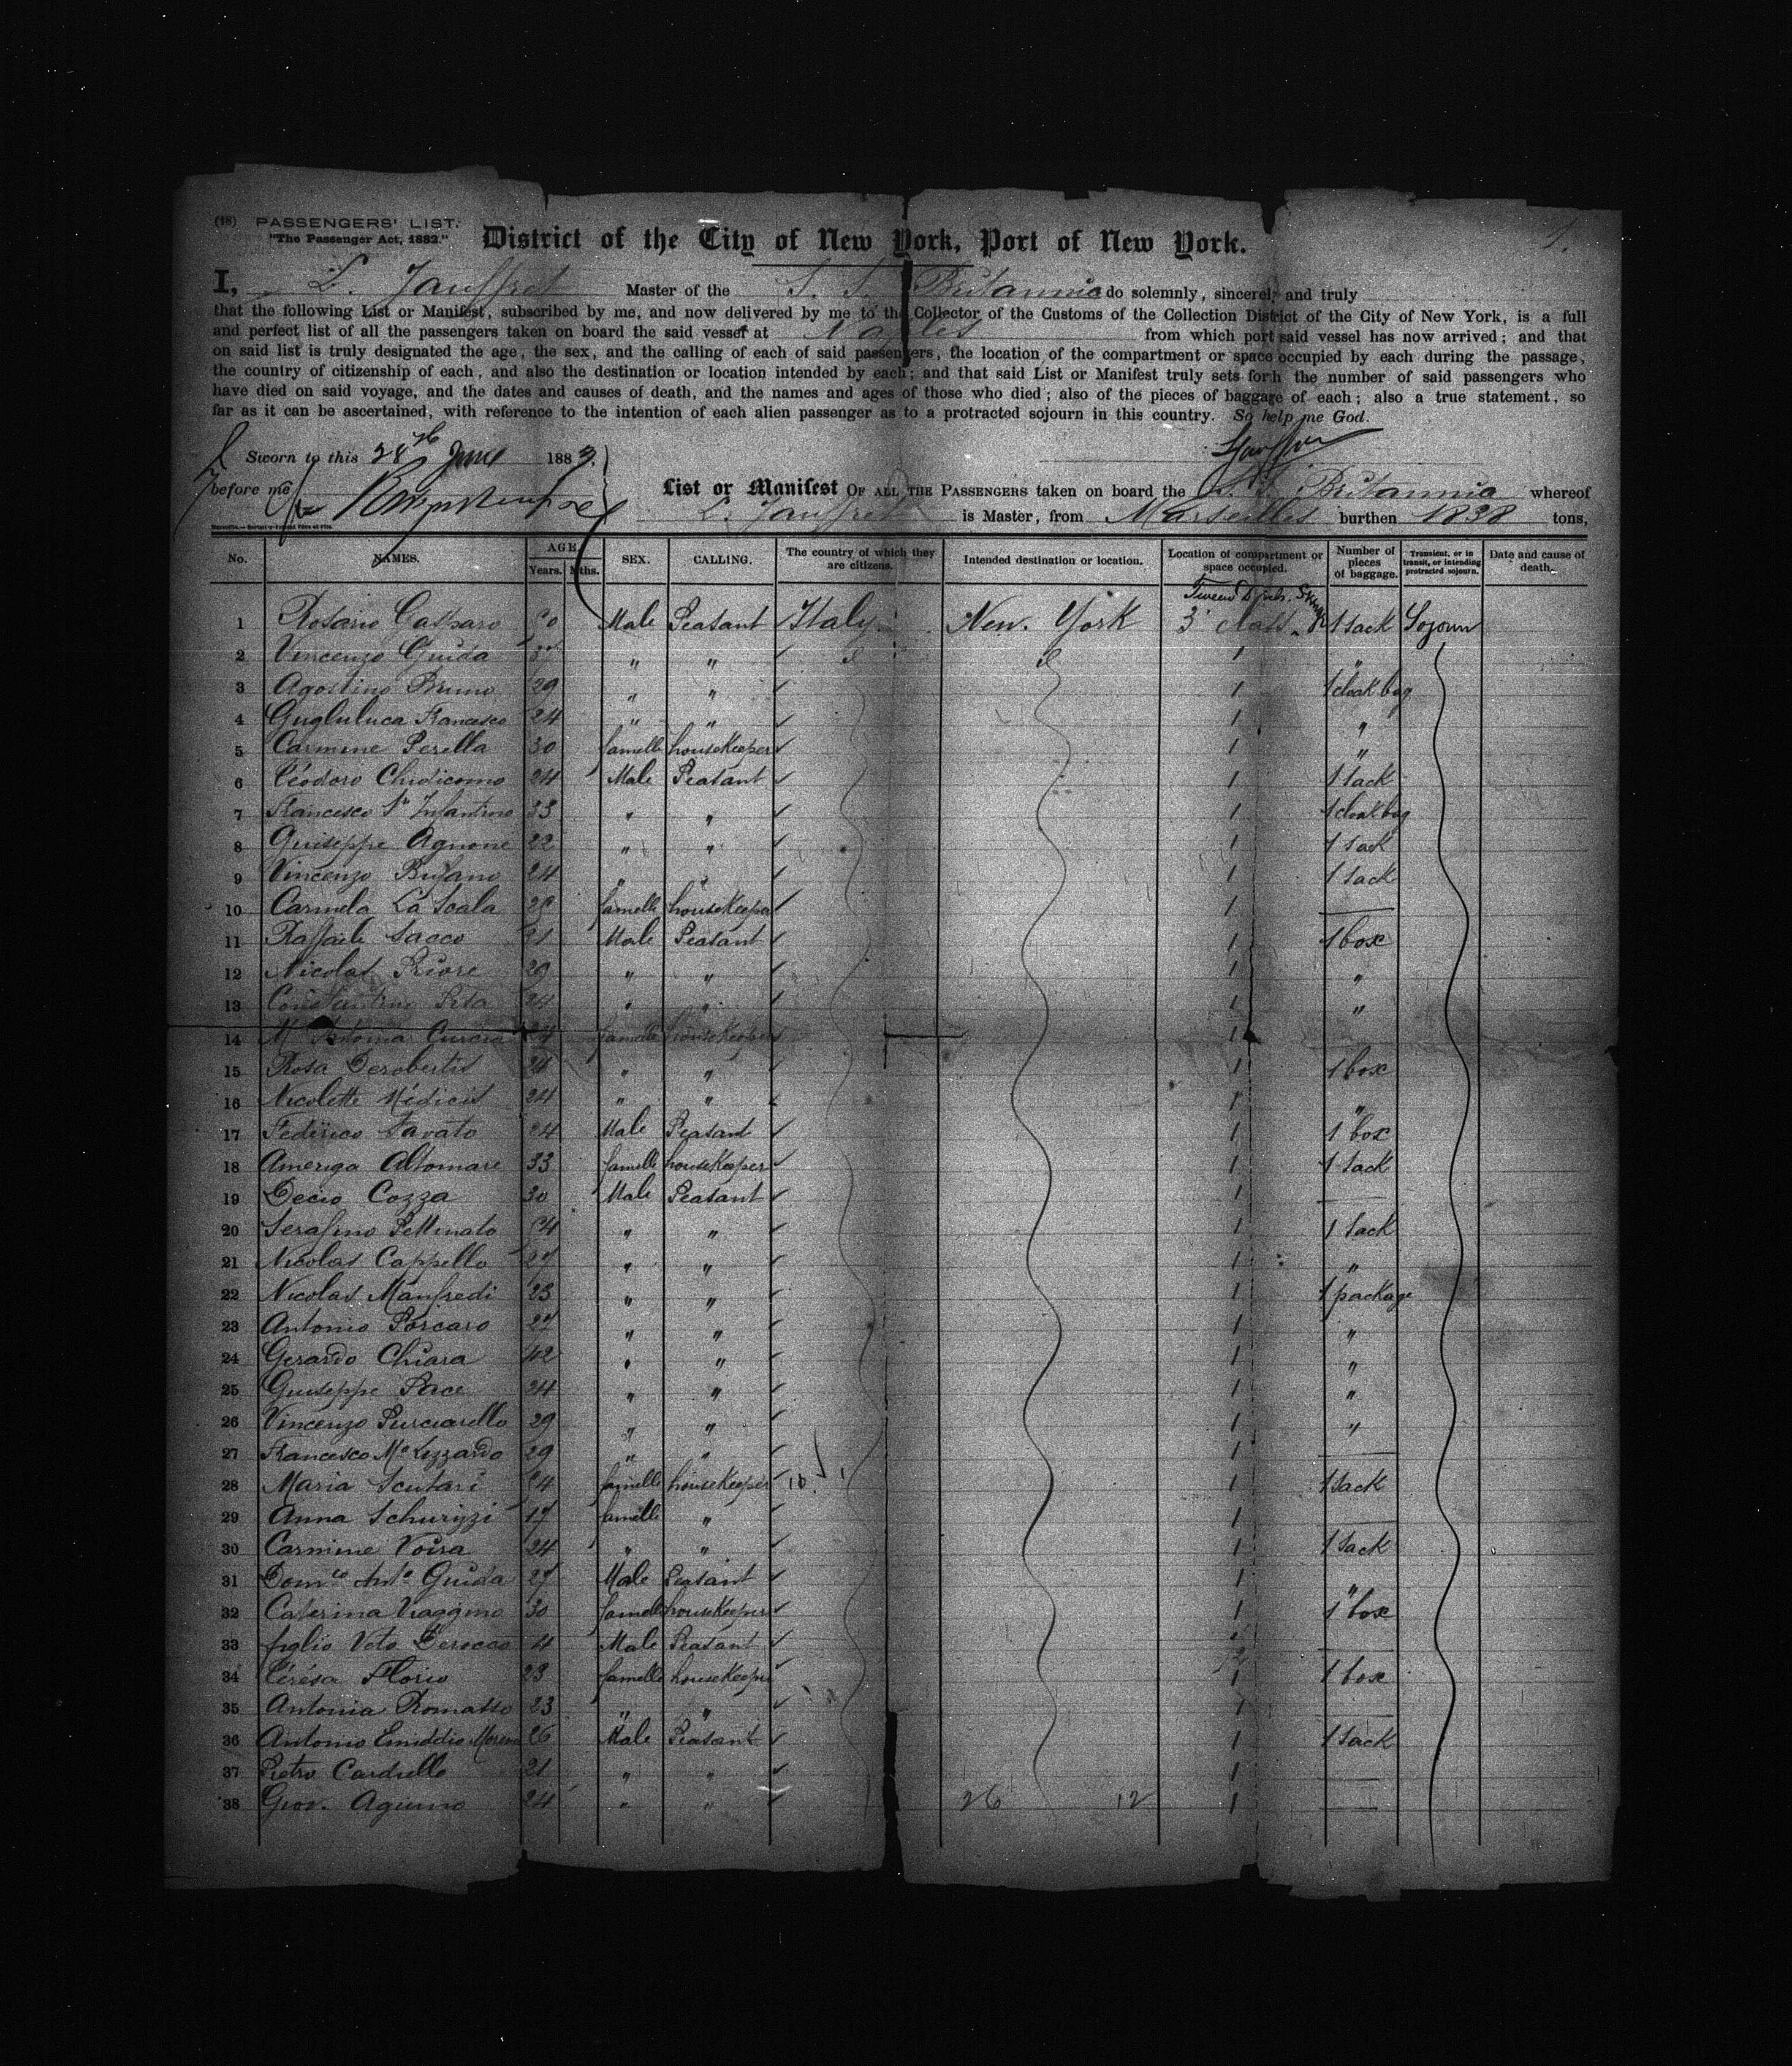 (18) PASSENGERS' LIST.
"The Passenger Act, 1882."
District of the City of New York, Port of New York.
1.
I, L. Jauffret Master of the S. S. Britannia do solemnly, sincerely and truly
that the following List or Manifest, subscribed by me, and now delivered by me to the Collector of the Customs of the Collection District of the City of New York, is a full
and perfect list of all the passengers taken on board the said vessel at Naples from which port said vessel has now arrived; and that
on said list is truly designated the age, the sex, and the calling of each of said passengers, the location of the compartment or space occupied by each during the passage,
the country of citizenship of each, and also the destination or location intended by each; and that said List or Manifest truly sets forh the number of said passengers who
have died on said voyage, and the dates and causes of death, and the names and ages of those who died; also of the pieces of baggage of each; also a true statement, so
far as it can be ascertained, with reference to the intention of each alien passenger as to a protracted sojourn in this country. So help me God.
Sworn to this 28th June 1883.
before me
List or Manifest OF ALL THE PASSENGERS taken on board the S. S. Britannia whereof
L. Jauffret is Master, from Marseilles burthen 1838 tons,
No. NAMES. AGE Years. Mths. SEX. CALLING. The country of which they are citizens. Intended destination or location. Location of compartment or space occupied. Number of pieces of baggage. Transient, or in transit, or intending protracted sojourn. Date and cause of death.
1 Rosario Male Peasant Italy New. York 3' class 1 sack Sojourn
2 Vincenzo Guida 37 " " 1 "
3 Agostino Bruno 29 " " 1 1 cloak bag
4 Francesco 24 " " 1 "
5 Carmine Perella 30 famelle houseKeeper 1 "
6 Teodoro Chidicomo 24 Male Peasant 1 1 sack
7 Francesco 33 " " 1 1 cloak bag
8 Guiseppe Agnone 22 " " 1 1 sack
9 Vincenzo Bufano 24 " " 1 1 sack
10 Carmela La Scala 28 famelle houseKeeper 1
11 Raffaele Sacco 21 Male Peasant 1 1 box
12 Nicolas Priore 29 " " 1 "
13 Constantino 24 " " 1 "
14 24 famelle houseKeeper 1
15 Rosa Derobertis 24 " " 1 1 box
16 Nicolette Médicis 24 " " 1 "
17 Federico 24 Male Peasant 1 1 box
18 Ameriga Altomare 33 famelle houseKeeper 1 1 sack
19 Decio Cozza 30 Male Peasant 1
20 Serafino Pettinato 24 " " 1 1 sack
21 Nicolas Cappello 27 " " 1 "
22 Nicolas Manfredi 23 " " 1 1 package
23 Antonio Porcaro 27 " " 1 "
24 Gerardo Chiara 42 " " 1 "
25 Guiseppe Pace 24 " " 1 "
26 Vincenzo Purciarello 29 " " 1 "
27 Francesco 29 " " 1
28 Maria Scutari 24 famelle houseKeeper 1 1 sack
29 Anna 17 famelle " 1
30 Carmine Voira 24 " " 1 1 sack
31 Domco Anto Guida 27 Male Peasant 1 "
32 Caterina Viaggino 30 famelle houseKeeper 1 1 box
33 figlio Vito Derocco 4 Male Peasant
34 Térésa Florio 23 famelle houseKeeper 1 1 box
35 Antonia 23 " " 1
36 Antonio Emiddio 26 Male Peasant 1 1 sack
37 Pietro Cardullo 21 " " 1
38 Giov. 24 " " 26 12 1